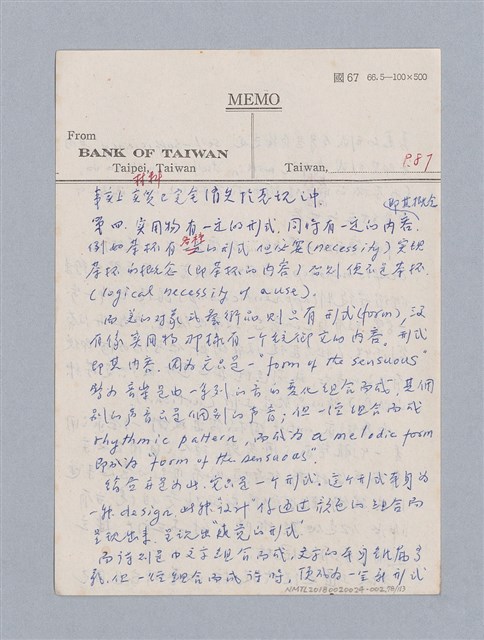 國67 66.5—100×500
MEMO
From
BANK OF TAIWAN
Taipei, Taiwan
Taiwan,
P.87
材料
事實上並已完全消失於表現之中.
即其概念
第四.實用物有一定的形式,同時有一定的內容.
各種
例如茶杯有的形式,但必要(necessity)實現
茶杯的概念(即茶杯的內容)否則便不是茶杯.
(logical necessity of a use).
而美的對象或藝術品,則只有形式(form),沒
有像實用物那樣有一個統御它的內容.形式
即其內容.因為它只是一"form of the sensuous"
譬如音樂是由一系列的音的變化組合而成,其個
別的聲音只是個別的聲音;但一經組合而成
rhythmic pattern,而成為a melodic form
即成為"form of the sensuous".
繪畫亦是如此.它只是一個形式.這個形式本身為
一種design,此種設計係通過顏色的組合而
呈現出來,呈現出"感覺的形式"
而詩則是由文字組合而成,文字的本身雖屬了
我,但一經組合而成詩時,便成為一全新形式
NMTL20180020024-002